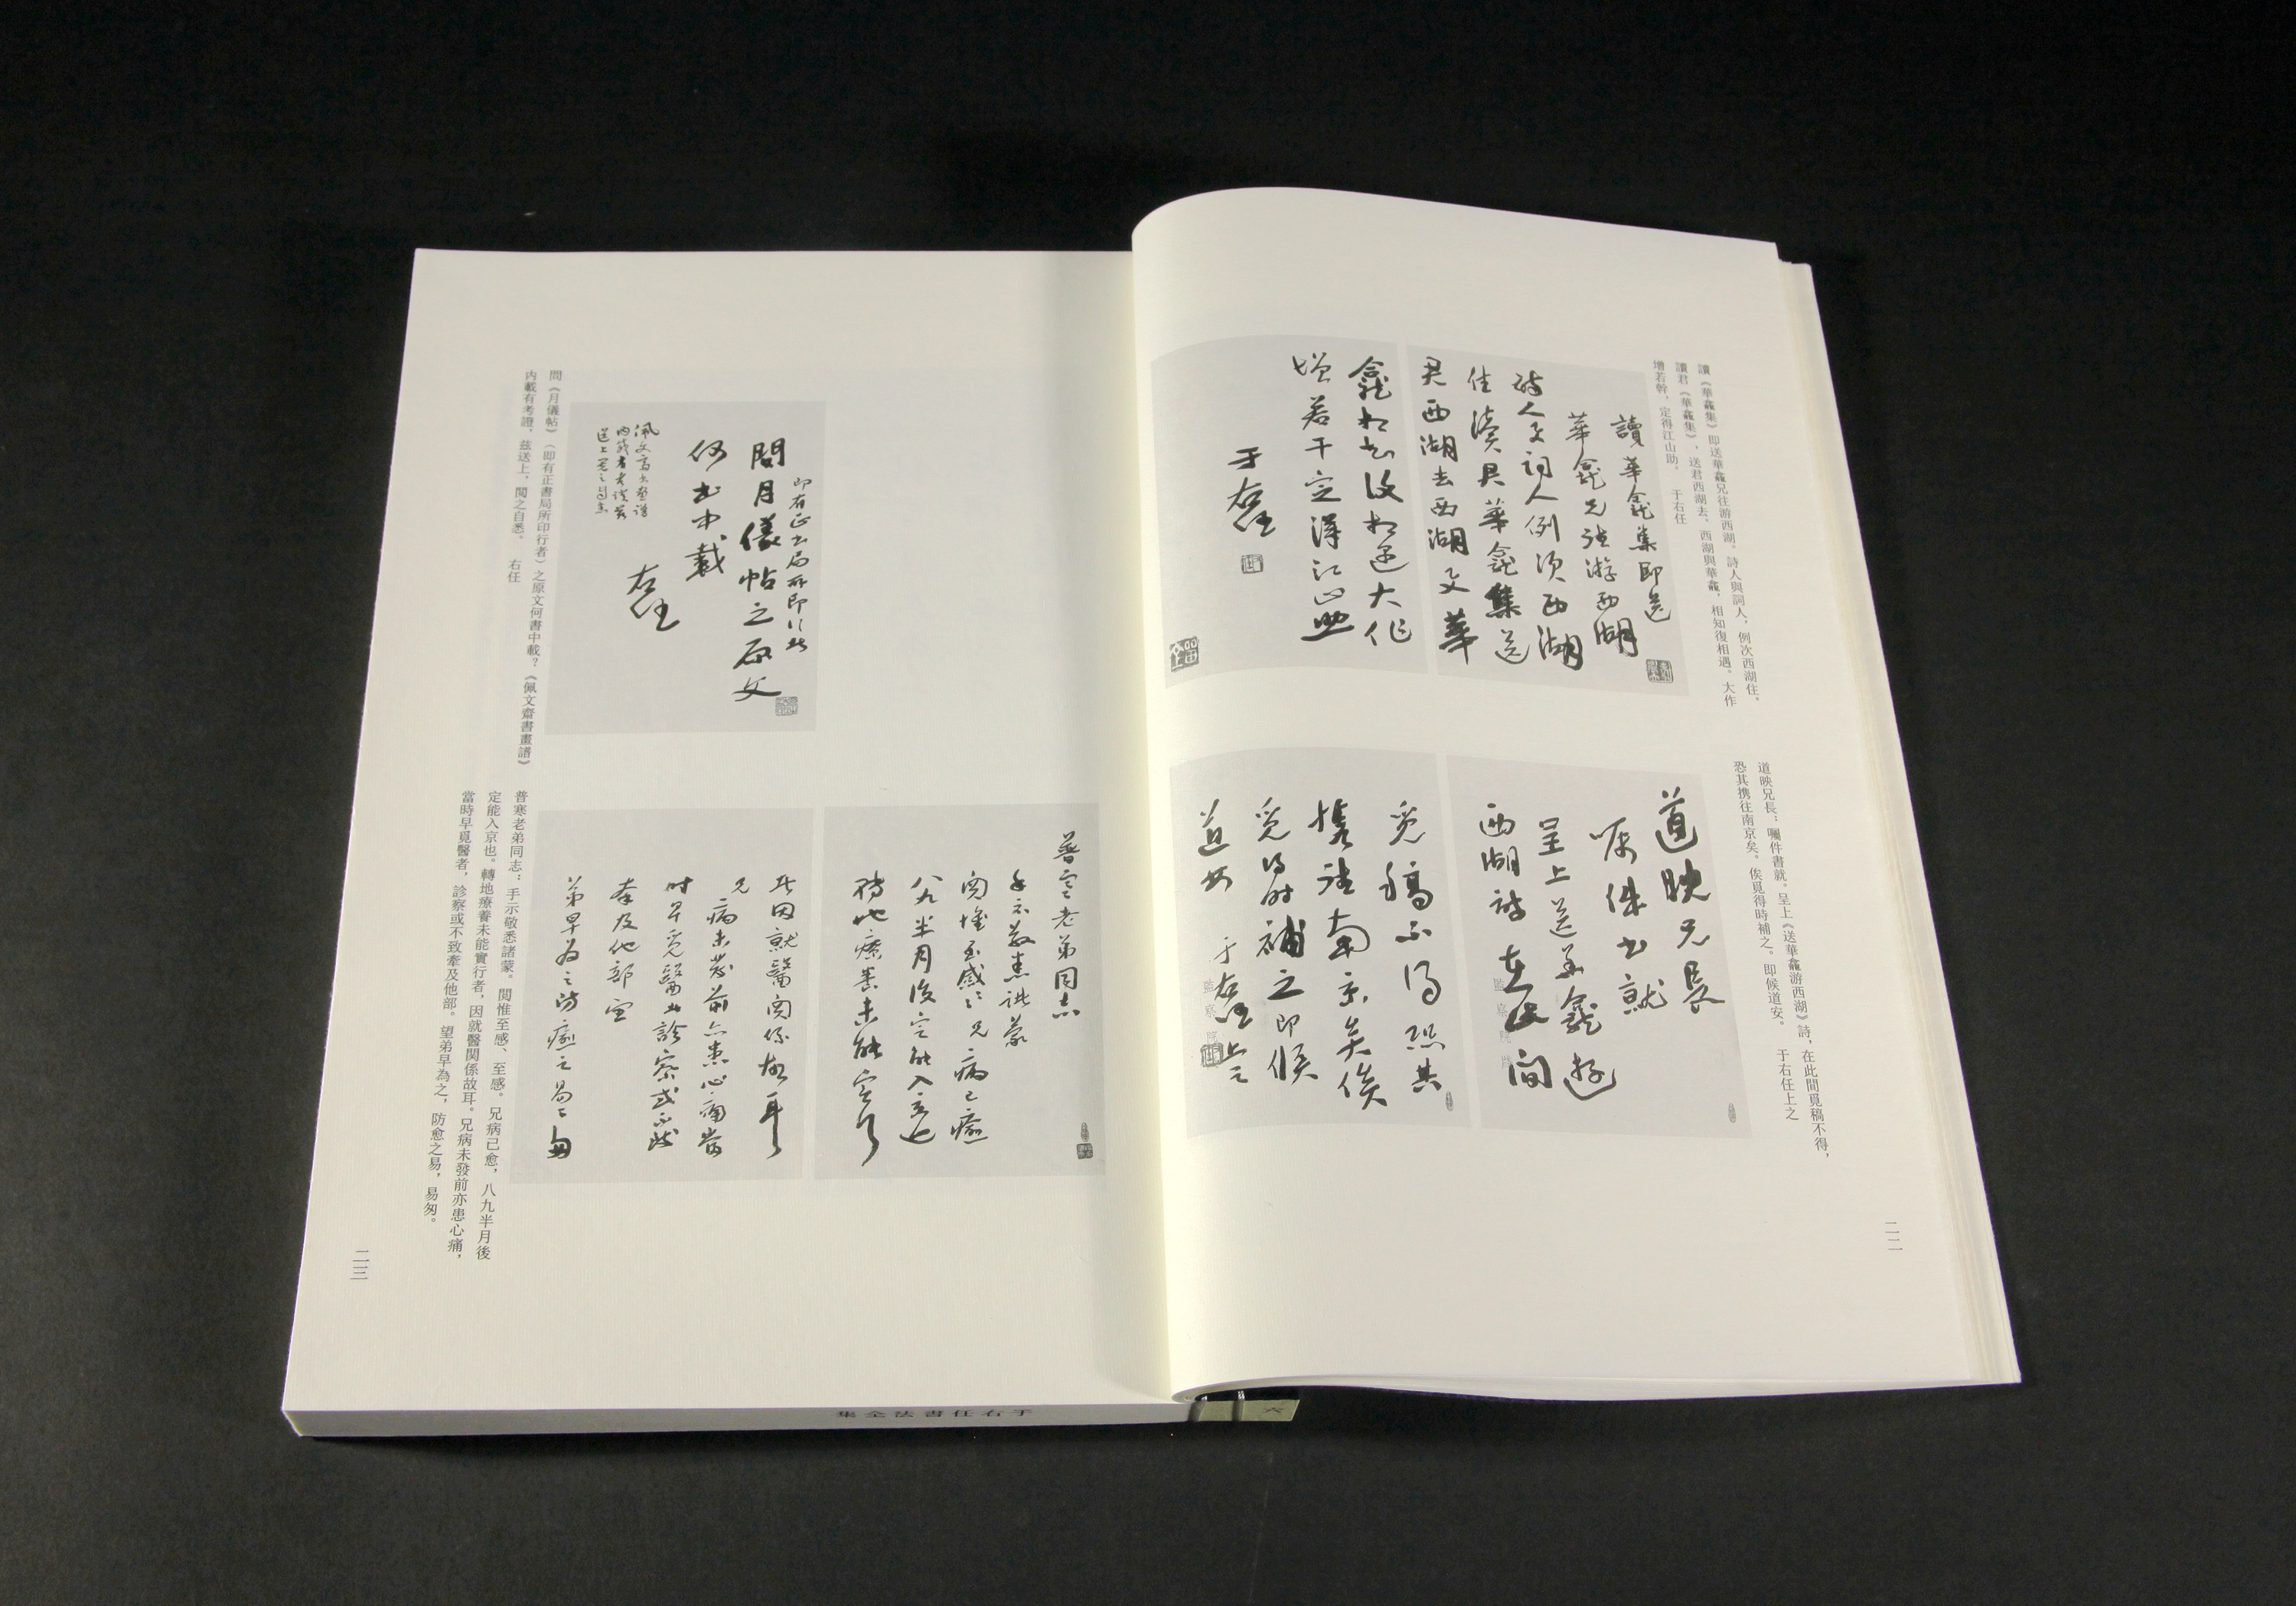 讀《華龕集》即送華龕兄往游西湖。詩人與詞人，例次西湖住。
讀君《華龕集》，送君西湖去。西湖與華龕，相知復相遇。大作
增若幹，定得江山助。　于右任
讀華龕集即送
華龕兄往游西湖
詩人與詞人例須西湖
住讀君華龕集送
君西湖去西湖又華
龕相知復相遇大作
增若干定得江山助
于右任
道映兄長：囑件書就。呈上《送華龕游西湖》詩，在此間覓稿不得，
恐其携往南京矣。俟覓得時補之。即候道安。　于右任上之
道映兄長
囑件書就
呈上送華龕游
西湖詩在此間
覓稿不得恐其
攜往南京矣俟
覓得時補之即候
道安　于右任上之
二二
即有正書局所印行者
問月儀帖之原文
何書中載
右任
佩文齋書畫譜
內載有考證茲
送上閱之自悉
問《月儀帖》（即有正書局所印行者）之原文何書中載？《佩文齋書畫譜》
内載有考證，兹送上，閲之自悉。　右任
普寒老弟同志
手示敬悉諸蒙
關惟至感々兄病已癒
八九半月後定能入京也
轉地療養未能實行
者因就醫關係故耳
兄病未發前亦患心痛當
時早覓醫者診察或不致
牽及他部望
弟早為之防癒之易々匆
普寒老弟同志：手示敬悉諸蒙。閲惟至感、至感。兄病已愈，八九半月後
定能入京也。轉地療養未能實行者，因就醫関係故耳。兄病未發前亦患心痛，
當時早覓醫者，診察或不致牽及他部。望弟早為之，防愈之易，易匆。
二三
于右任書法全集
六